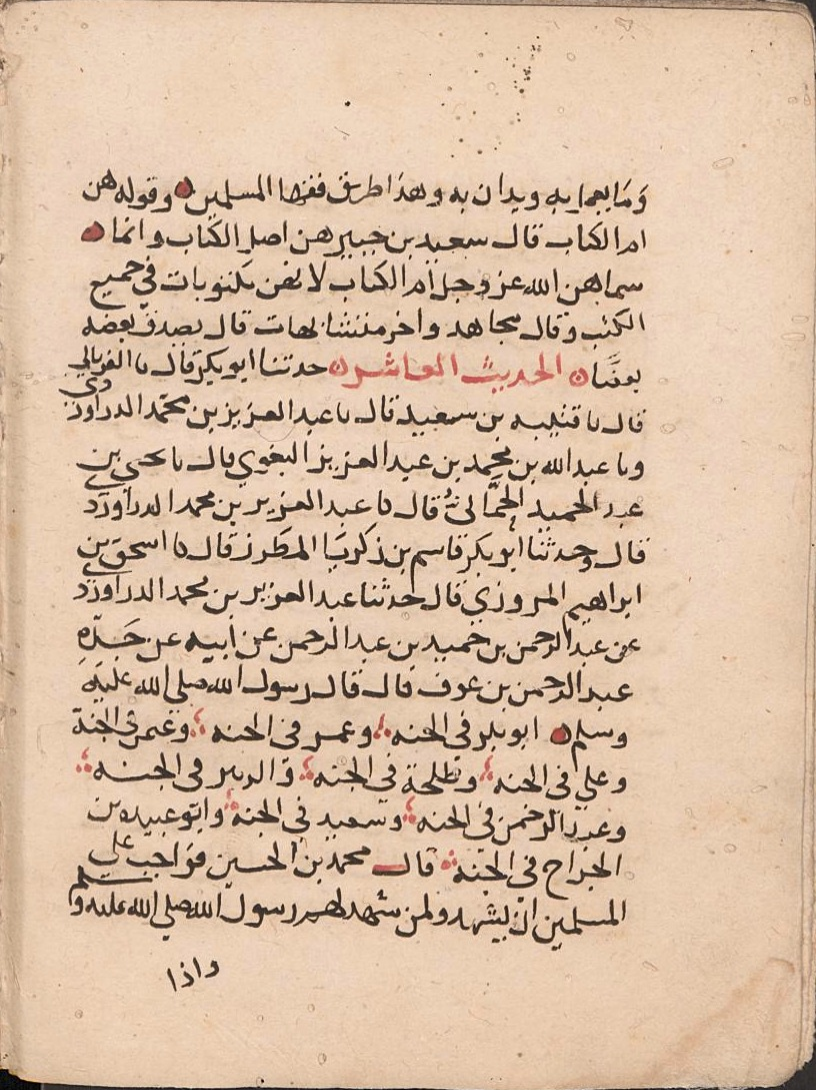 وما يعمل به ويدان به وهذا طريق فقها المسلمين ۵ وقوله هن
ام الكتاب قال سعيد بن جبير هن اصل الكتاب وانما ۵
سماهن الله عز وجل أم الكتاب لانهن مكتوبات في جميع
الكتب وقال مجاهد واخر متشابهات قال يصدق بعضه
بعضا ۵ الحديث العاشر ۵ حدثنا ابو بكر قال نا الفريابي
قال نا قتيبه بن سعيد قال نا عبد العزيز بن محمد الدراوردي
ونا عبد الله بن محمد بن عبد العزيز البغوي قال نا يحيى بن
عبد الحميد الحماني قال نا عبد العزيز بن محمد الدراوردي
قال وحدثنا ابو بكر قاسم بن زكريا المطرز قال نا اسحق بن
ابراهيم المروزي قال حدثنا عبد العزيز بن محمد الدراوردي
عن عبد الرحمن بن حميد بن عبد الرحمن عن أبيه عن جده
عبد الرحمن بن عوف قال قال رسول الله صلى الله عليه
وسلم ۵ ابو بكر في الجنه وعمر في الجنه وعثمن في الجنة
وعلي في الجنه وطلحة في الجنه والزبير في الجنه
وعبد الرحمن في الجنه وسعيد في الجنة وابو عبيده بن
الجراح في الجنة قال محمد بن الحسين فواجب على
المسلمين ان يشهدو لمن شهد لهم رسول الله صلى الله عليه وسلم
واذا